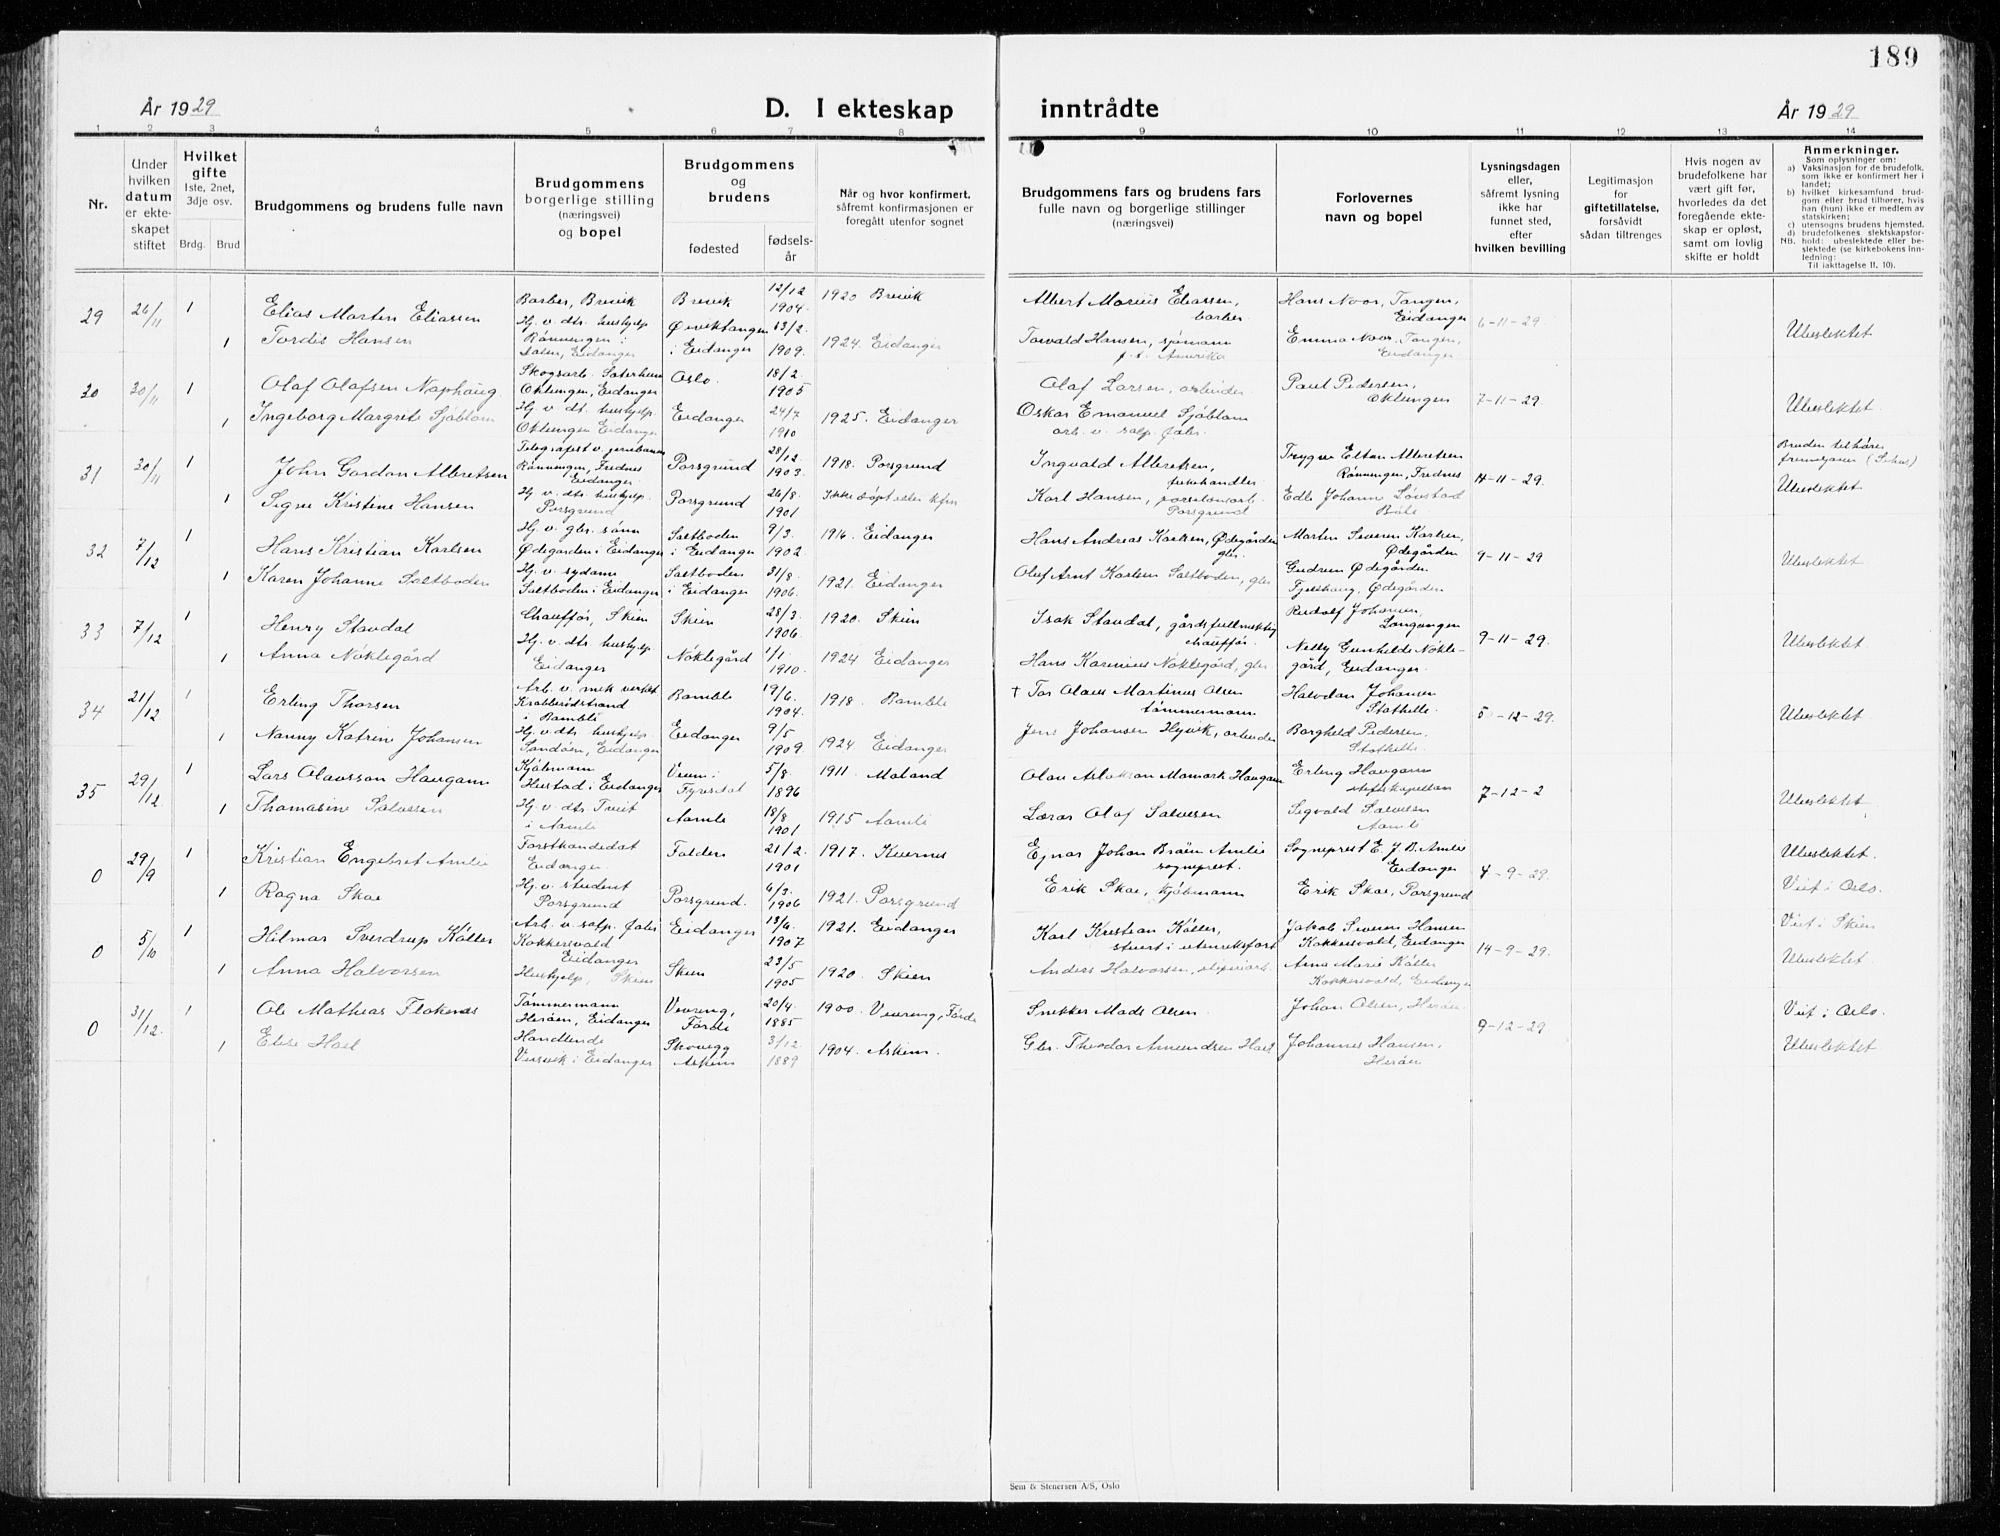 189
År 1929
D. I ekteskap inntrådte
År 1929
1 2 3 4 5 6 7 8 9 10 11 12 13 14
Nr.
Under hvilken datum er ekteskapet stiftet
Hvilket gifte
1ste, 2net, 3dje osv.
Brdg. Brud
Brudgommens og brudens fulle navn
Brudgommens borgerlige stilling (næringsvei) og bopel
Brudgommens og brudens
fødested
fødselsår
Når og hvor konfirmert, såfremt konfirmasjonen er foregått utenfor sognet
Brudgommens fars og brudens fars fulle navn og borgerlige stillinger (næringsvei)
Forlovernes navn og bopel
Lysningsdagen eller, såfremt lysning ikke har funnet sted, efter hvilken bevilling
Legitimasjon for giftetillatelse, forsåvidt sådan tiltrenges
Hvis nogen av brudefolkene har vært gift før, hvorledes da det foregående ekteskap er opløst, samt om lovlig skifte er holdt
Anmerkninger.
Som oplysninger om:
a) Vaksinasjon for de brudefolk, som ikke er konfirmert her i landet;
b) hvilket kirkesamfund brudgom eller brud tilhører, hvis han (hun) ikke er medlem av statskirken;
c) utensogns brudens hjemsted.
d) brudefolkenes slektskapsforhold: ubeslektede eller beslektede (se kirkebokens innledning:
NB. Til iakttagelse II, 10).
29 26/11 1 Elias Marten Eliassen Barber, Brevik Brevik 12/12 1904 1920 Brevik Albert Marius Eliassen, barber Hans Noor, Tangen, Eidanger 6-11-29. Ubeslektet
1 Tordis Hansen Hj. v. dts. hushjelp Rønningen i Dalen, Eidanger Øiviktangen i Eidanger 13/2 1909. 1924. Eidanger Torvald Hansen, sjømann f. t. Amerika Emma Noor, Tangen, Eidanger
30 30/11 1 Olaf Olafsen Naphaug Skogsarb. Oklungen, Eidanger Oslo. 18/2 1905 Olaf Larsen, arbeider Paul Pedersen, Oklungen 7-11-29.
1 Ingeborg Margrit Sjöblom Hj. v. dt. hushjelp. Oklungen Eidanger Eidanger 24/7 1910 1925. Eidanger Oskar Emanuel Sjöblom arb. v. salp. fabr. Ubeslektet
31 30/11 1 John Gordon Albretsen Telegrafist v. jernbanen Rønningen, Frednes Eidanger Porsgrund 28/12 1903. 1918. Porsgrund Ingvald Albretsen, fiskehandler Trygve Elton Albretsen Rønningen, Frednes 14-11-29. Bruden tilhører
1 Signe Kristine Hansen Hj. v. dts. hushjelp. Porsgrund Porsgrund 26/8 1901 Ikke døpt eller kfm Karl Hansen, porselensarb. Porsgrund Edle Johanne Lønstad Ubeslektet
32 7/12 1 Hans Kristian Karlsen Hj. v. gbr. sønn Ødegården i Eidanger Saltboden i Eidanger 9/3 1902. 1916. Eidanger Hans Andreas Karlsen, Ødegården gbr. Marten Severin Karlsen, Ødegården 9-11-29
1 Karen Johanne Saltboden Hj. v. sydame Saltboden i Eidanger Saltboden i Eidanger 31/8 1906. 1921. Eidanger Oluf Arnt Karlsen Saltboden, gbr Gudrun Ødegården Fjelshaug, Ødegården Ubeslektet
33 7/12 1 Henry Stavdal Chauffør, Skien Skien 28/3 1906. 1920. Skien Isak Stavdal, gårdsfullmektig chauffør. Rudolf Johansen, Langangen 9-11-29.
1 Anna Nøklegård Hj. v. dts. hushjelp. Eidanger Nøklegård 1/1 1910. 1924 Eidanger Hans Karenius Nøklegård, gbr. Nelly Gunhilde Nøklegård, Eidanger. Ubeslektet
34 21/12 1 Erling Thorsen Arb. v. mek verkst Krabberødstrand i Bamble Bamble 19/6. 1904. 1918. Bamble † Tor Olaus Martinus Olsen tømmermann Halvdan Johansen Stathelle 5-12-29.
1 Nanny Katrine Johansen Hj. v. dts hushjelp Sandøen, Eidanger Eidanger 9/5 1909. 1924. Eidanger Jens Johansen Hyvik, arbeider Borghild Pedersen, Stathelle Ubeslektet
35 29/12. 1 Lars Olavsson Haugann Kjøbmann Herstad i Eidanger Fyresdal 5/8 1896 1911 Moland Olav Aslakson Momark Haugann Erling Haugann 7-12-2
1 Thomasine Salvesen Hj. v. dts. Tveit i Aamli Aamli 18/8 1901. 1915 Aamli Lærer Olaf Salvesen Sigvald Salvesen Aamli Ubeslektet
0 29/9 1 Kristian Engebret Amlie Forstkandidat Eidanger Folden 21/2 1901 1917. Kvernes Ejnar Johan Braën Amlie sogneprest. Sogneprest E. J. B. Amlie Eidanger 4-9-29. Ubeslektet.
1 Ragna Skae Hj. v. student Porsgrund Porsgrund. 6/3. 1906 1921. Porsgrund Erik Skae, kjøbmann Erik Skae, Porsgrund Viet i Oslo.
0 5/10 1 Hilmar Sverdrup Køller Arb. v. salp. fabr Kokkersvold Eidanger Eidanger 13/6. 1907 1921. Eidanger Karl Kristian Køller, stuert i utenriksfart Jakob Severin Hansen Kokkersvold, Eidanger 14-9-29. Viet i Skien
1 Anna Halvorsen Hushjelp, Skien Skien 23/5 1905 1920. Skien Anders Halvorsen, sliperiarb. Anna Marie Køller Kokkersvold, Eidanger Ubeslektet.
0 31/12. 1 Ole Mathias Flokenes Tømmermann Herøen, Eidanger Vevring, Førde 20/4. 1885 1900 Vevring, Førde Snekker Mads Olsen Johan Olsen, Herøen 9-12-29 Viet i Oslo.
1 Elise Hoel Handlende Versvik i Eidanger Skovegg Askim 3/12 1889 1904. Askim. Gbr. Theodor Amundsen Hoel Johannes Hansen, Herøen Ubeslektet
Sem & Stenersen A/S, Oslo